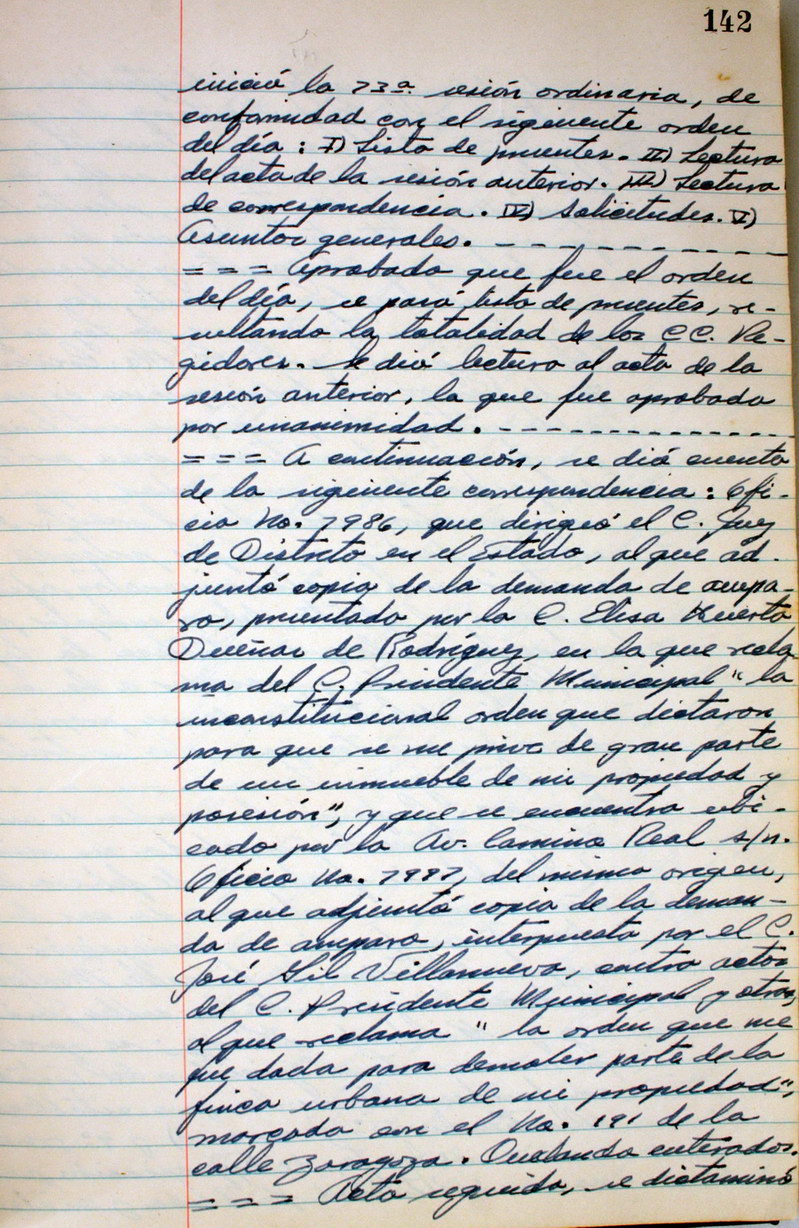 142
inició la 73ª sesión ordinaria, de
conformidad con el siguiente orden
del día : I) Lista de presentes. II) Lectura
del acta de la sesión anterior. III) Lectura
de correspondencia. IV) Solicitudes. V)
Asuntos generales. - - - - - - - - - -
= = = Aprobado que fue el orden
del día, se pasó lista de presentes, re-
sultando la totalidad de los CC. Re-
gidores. Se dió lectura al acta de la
sesión anterior, la que fue aprobada
por unanimidad. - - - - - - - - - - - - - -
= = = A continuación, se dió cuenta
de la siguiente correspondencia : Ofi-
cio No. 7986, que dirigió el C. Juez
de Distrito en el Estado, al que ad-
juntó copia de la demanda de ampa-
ro, presentado por la C. Elisa Huerta
Dueñas de Rodríguez, en la que recla
ma del C. Presidente Municipal "la
inconstitucional orden que dictaron
para que se me prive de gran parte
de un inmueble de mi propiedad y
posesión", y que se encuentra ubi-
cado por la Av. Camino Real s/n.
Oficio No. 7987, del mismo origen,
al que adjuntó copia de la deman-
da de amparo, interpuesta por el C.
José Gil Villanueva, contra actos
del C. Presidente Municipal y otros,
al que reclama "la orden que me
fue dada para demoler parte de la
finca urbana de mi propiedad",
marcada con el No. 191 de la
calle Zaragoza. Quedando enterados.
= = = Acto seguido, se dictaminó